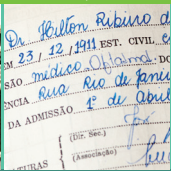 Dr. Hilton Ribeiro d
EM 23/12/1911 EST. CIVIL c
SÃO médico Oftalmol. DO
ÊNCIA Rua Rio de Janei
DA ADMISSÃO 1º de Abri
(Dir. Sec.)
(Associação)
ATURAS